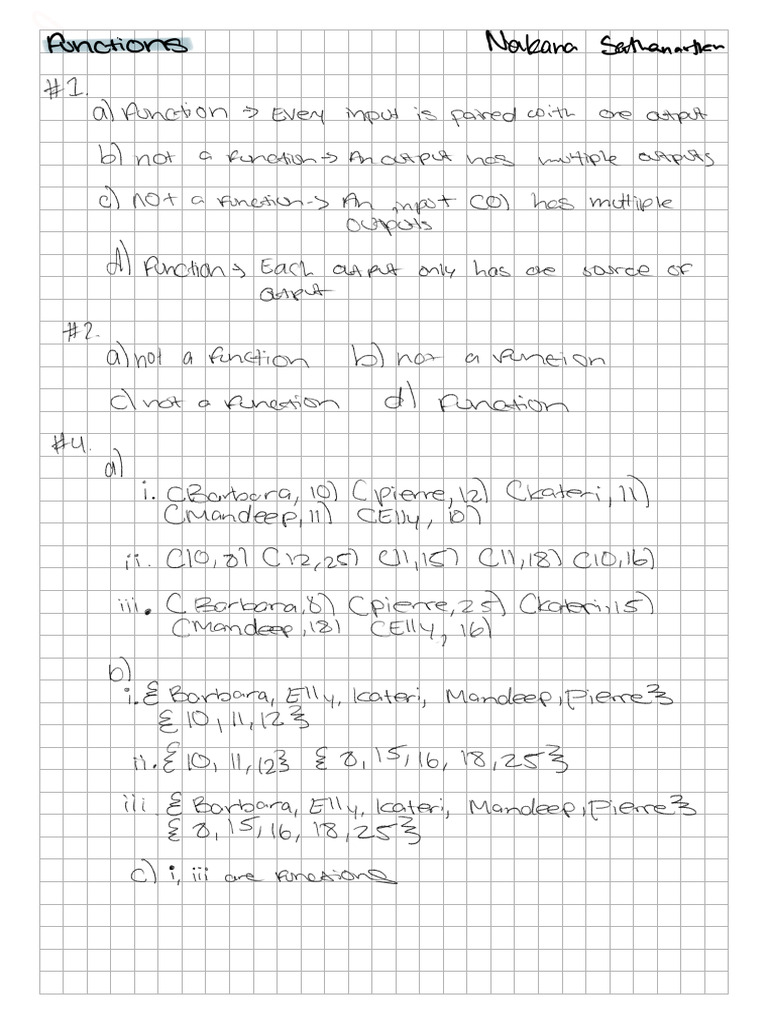 Functions Nakana
#1.
a) Function → Every input is paired with one output
b) not a function → An output has multiple outputs
c) not a function → An input (0) has multiple
outputs
d) Function → Each output only has one source of
output
#2.
a) not a function b) not a funcion
c) not a function d) function
#4.
a)
i. (Barbara, 10) (Pierre, 12) (Kateri, 11)
(Mandeep, 11) (Elly, 10)
ii. (10, 8) (12, 25) (11, 15) (11, 18) (10, 16)
iii. (Barbara, 8) (Pierre, 25) (Kateri, 15)
(Mandeep, 18) (Elly, 16)
b)
i. {Barbara, Elly, Kateri, Mandeep, Pierre}
{10, 11, 12}
ii. {10, 11, 12} {8, 15, 16, 18, 25}
iii {Barbara, Elly, Kateri, Mandeep, Pierre}
{8, 15, 16, 18, 25}
c) i, iii are functions